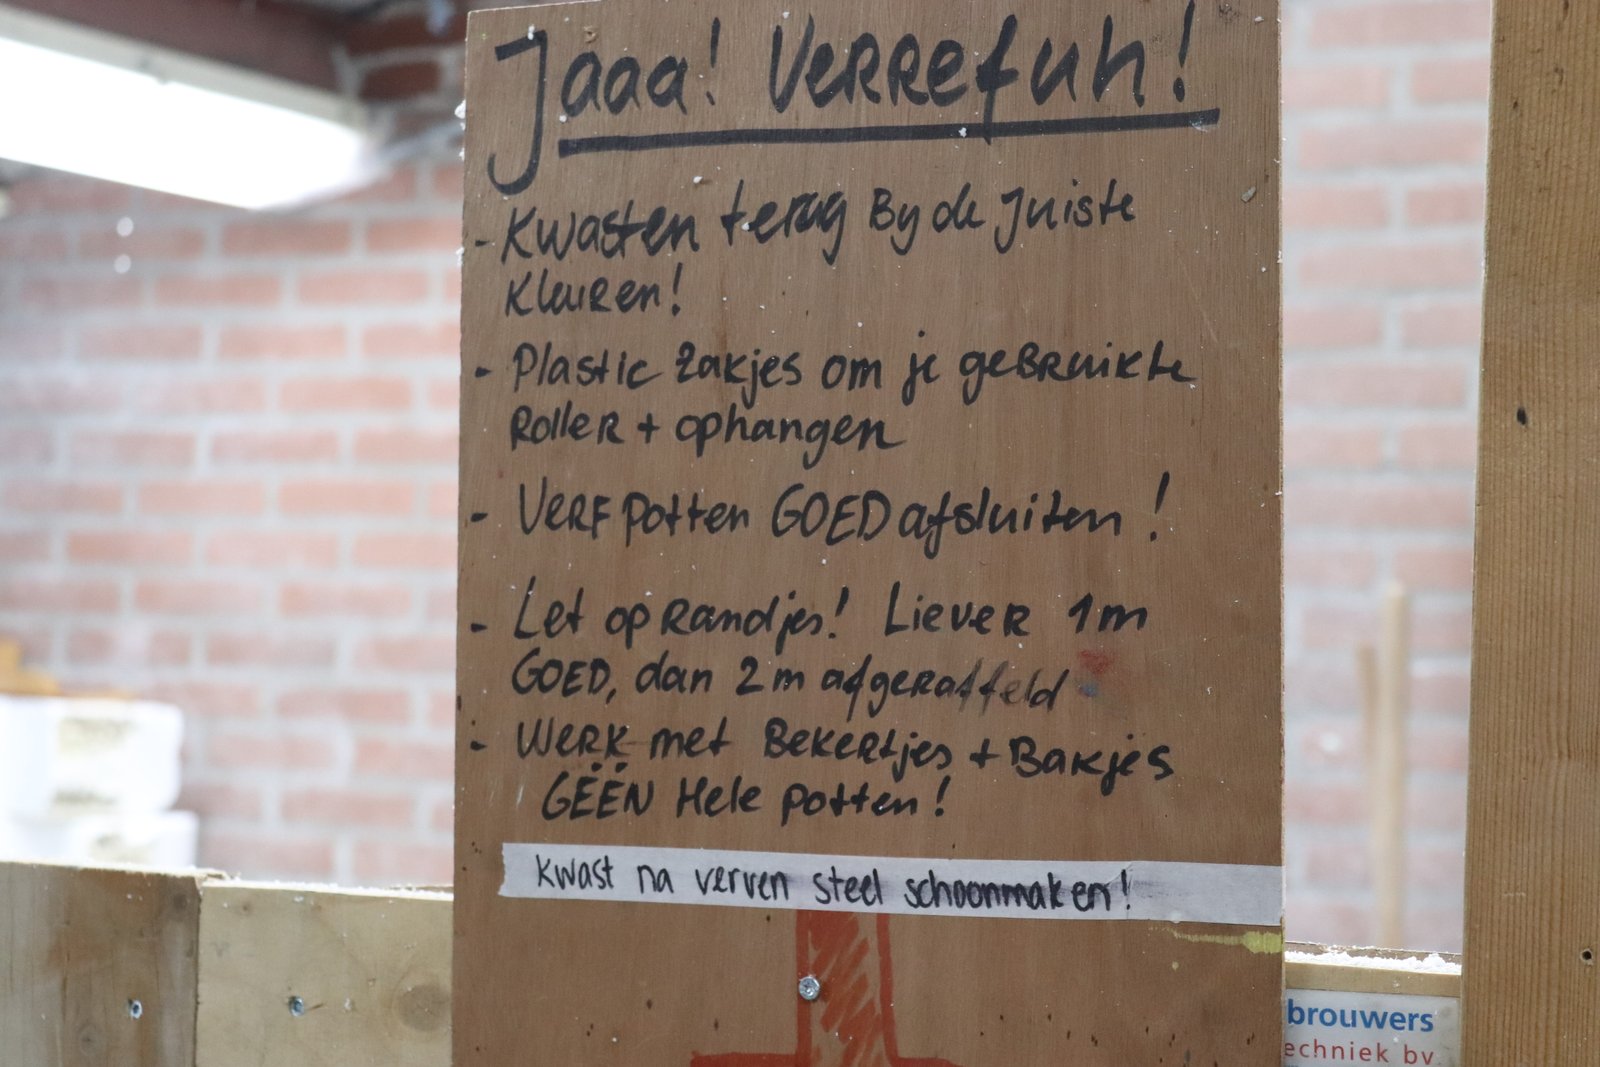 Jaaa! Verrefuh!
- Kwasten terug By de Juiste
Kleuren!
- Plastic zakjes om je geBruikte
Roller + ophangen
- Verf potten GOED afsluiten!
- Let op Randjes! Liever 1m
GOED, dan 2m afgeraffeld
- Werk met Bekertjes + Bakjes
GËËN Hele potten!
Kwast na verven steel schoonmaken!
brouwers
echniek bv